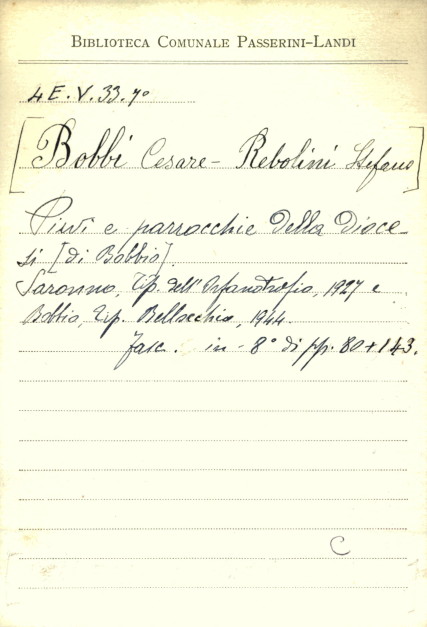 BIBLIOTECA COMUNALE PASSERINI-LANDI
4 E. V. 33. 7º
[Bobbi Cesare - Rebolini Stefano]
Pievi e parrocchie della dioce-
si [di Bobbio].
Saronno, Tip. dell'Orfanotrofio, 1927 e
Bobbio, Tip. Bellocchio, 1944.
Fasc. in-8º di pp. 80+143.
C